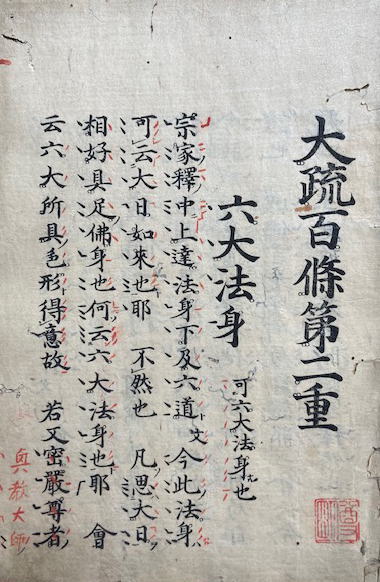 大疏百條第二重
六大法身
可六大法身也
宗家釋中上達法身下及六道文今此法身
可云大日如來也耶 不然也 凡思大日
相好具足佛身也何云六大法身也耶 會
云六大所具色形得意故 若又密嚴尊者
興教大師